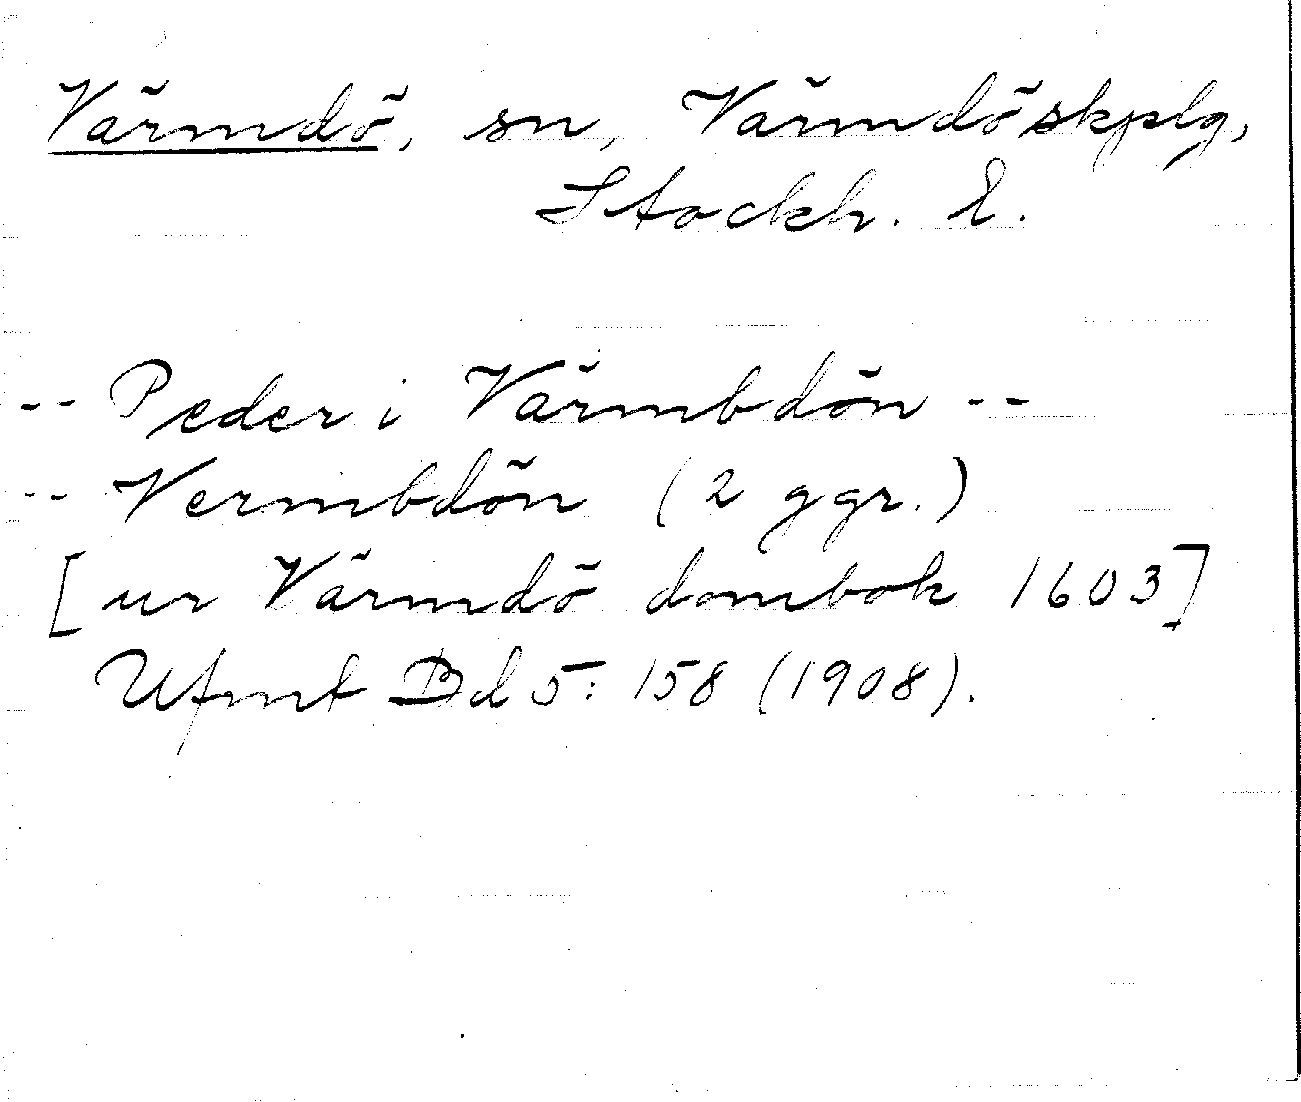 Värmdö, sn, Värmdö skplg,
Stockh. l.
-- Peder i Värmbdön --
-- Vermbdön (2 ggr.)
[ur Värmdö dombok 1603]
Ufmt Bd 5: 158 (1908).